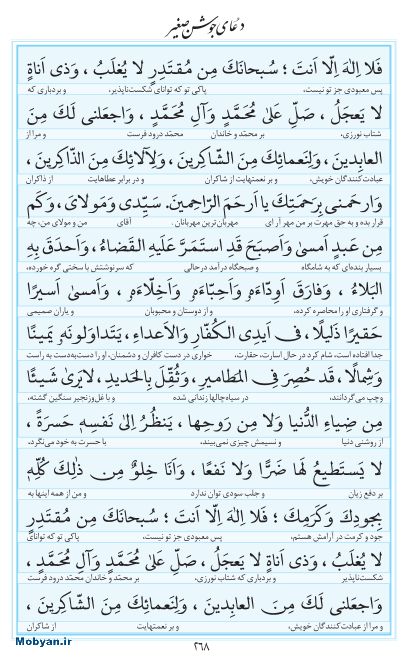 دعای جوشن صغیر
فَلا اِلٰهَ اِلّا اَنتَ ؛ سُبحانَكَ مِن مُقتَدِرٍ لا يُغلَبُ ، وَذي اَناةٍ
پس معبودی جز تو نیست، پاکی تو که توانای شکست‌ناپذیر، و بردباری که
لا يَعجَلُ ، صَلِّ عَلىٰ مُحَمَّدٍ وَآلِ مُحَمَّدٍ ، وَاجعَلني لَكَ مِنَ
شتاب نورزی، بر محمّد و خاندان محمّد درود فرست و مرا از
العابِدينَ ، وَلِنَعمائِكَ مِنَ الشّاكِرينَ ، وَلِآلائِكَ مِنَ الذّاكِرينَ ،
عبادت‌کنندگان خویش، و بر نعمتهایت از شاکران و در برابر عطاهایت از ذاکران
وَارحَمني بِرَحمَتِكَ يا اَرحَمَ الرّاحِمينَ. سَيِّدي وَمَولايَ ، وَكَم
قرار بده و به حق مهرت بر من مهر آر ای مهربان‌ترین مهربانان. آقای من و مولای من، چه
مِن عَبدٍ اَمسىٰ وَاَصبَحَ قَدِ استَمَرَّ عَلَيهِ القَضاءُ ، وَاَحدَقَ بِهِ
بسیار بنده‌ای که به شامگاه و صبحگاه درآمد درحالی که سرنوشتش با سختی گره خورده،
البَلاءُ ، وَفارَقَ اَوِدّاءَهُ وَاَحِبّاءَهُ وَاَخِلّاءَهُ ، وَاَمسىٰ اَسيرًا
و گرفتاری او را محاصره کرده، و از دوستان و محبوبان و یاران صمیمی
حَقيرًا ذَليلًا ، في اَيدِي الكُفّارِ وَالاَعداءِ ، يَتَداوَلونَهُ يَمينًا
جدا افتاده است، شام کرد در حال اسارت، حقارت، خواری در دست کافران و دشمنان، او را دست‌به‌دست به راست
وَشِمالًا ، قَد حُصِرَ فِي المَطاميرِ ، وَثُقِّلَ بِالحَديدِ ، لايَرىٰ شَيئًا
وچپ می‌گردانند، در سیاه‌چالها زندانی شده و با غل‌وزنجیر سنگین گشته،
مِن ضِياءِ الدُّنيا وَلا مِن رَوحِها ، يَنظُرُ اِلىٰ نَفسِهِ حَسرَةً ،
از روشنی دنیا و نسیمش چیزی نمی‌بیند، با حسرت به خود می‌نگرد،
لا يَستَطيعُ لَها ضَرًّا وَلا نَفعًا ، وَاَنَا خِلوٌ مِن ذٰلِكَ كُلِّهِ
بر دفع زیان و جلب سودی توان ندارد و من از همه اینها به
بِجودِكَ وَكَرَمِكَ ؛ فَلا اِلٰهَ اِلّا اَنتَ ؛ سُبحانَكَ مِن مُقتَدِرٍ
جود و کرمت در آرامش هستم، پس معبودی جز تو نیست، پاکی تو که توانای
لا يُغلَبُ ، وَذي اَناةٍ لا يَعجَلُ ، صَلِّ عَلىٰ مُحَمَّدٍ وَآلِ مُحَمَّدٍ ،
شکست‌ناپذیر و بردباری که شتاب نورزی، بر محمّد و خاندان محمّد درود فرست
وَاجعَلني لَكَ مِنَ العابِدينَ ، وَلِنَعمائِكَ مِنَ الشّاكِرينَ ،
و مرا از عبادت‌کنندگان خویش، و بر نعمتهایت از شاکران
۲۶۸
Mobyan.ir